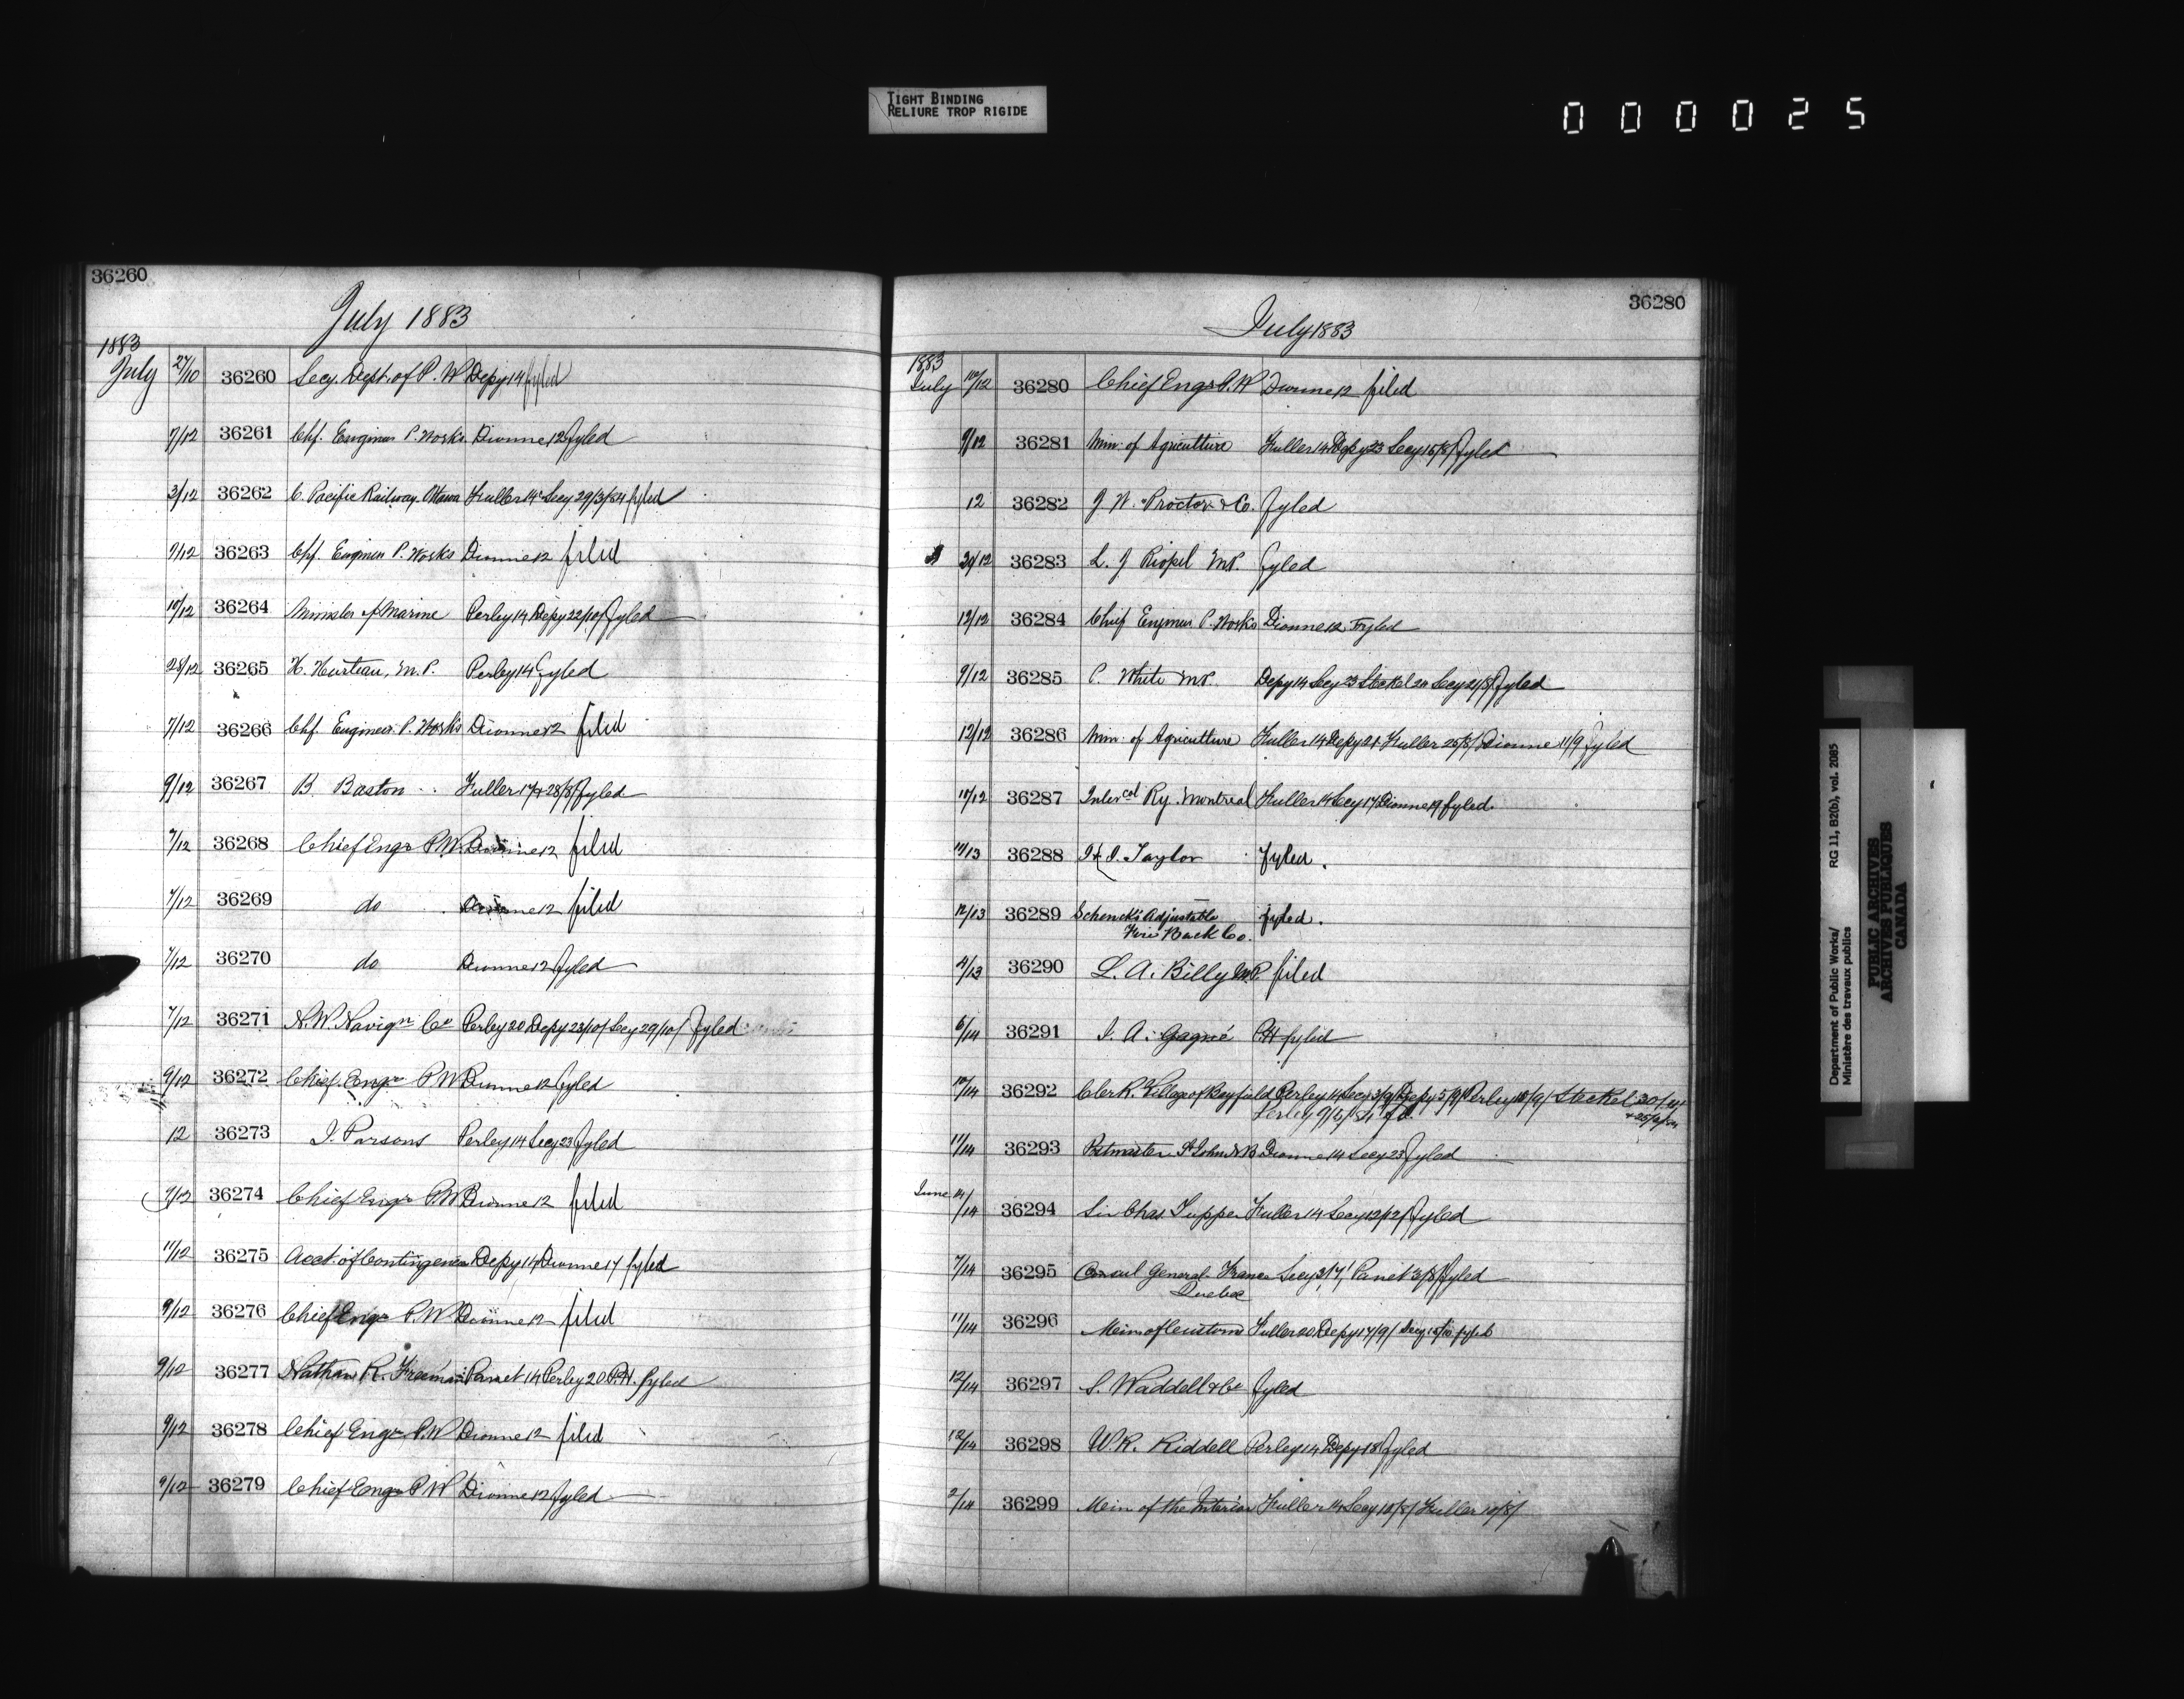 TIGHT BINDING
RELIURE TROP RIGIDE
000025
36260
July 1883
1883
July 27/10 36260 Secy. Dept. of P. W Depy 14 fyled
7/12 36261 Chf. Engineer P. Works Dionne 12 fyled
3/12 36262 C. Pacific Railway. Ottawa Fuller 14 Secy 29/3/84 fyled
9/12 36263 Chf. Engineer P. Works Dionne 12 filed
10/12 36264 Minister of Marine Perley 14 Depy 22/10/ fyled
28/12 36265 H. Hurteau, M.P. Perley 14 fyled
7/12 36266 Chf. Engineer P. Works Dionne 12 filed
9/12 36267 B. Baston Fuller 17 + 28/8/ fyled
7/12 36268 Chief Engr P.W. Dionne 12 filed
7/12 36269 do Dionne 12 filed
7/12 36270 do Dionne 12 fyled
7/12 36271 N.W. Navign Co Perley 20 Depy 23/10/ Secy 29/10/ fyled
9/12 36272 Chief Engr P W Dionne 12 fyled
12 36273 J. Parsons Perley 14 Secy 23 fyled
9/12 36274 Chief Engr P.W Dionne 12 filed
11/12 36275 Acct. of Contingencies Depy 14 Dionne 17 fyled
9/12 36276 Chief Engr P.W Dionne 12 filed
9/12 36277 Nathan R. Freeman Panet 14 Perley 20 P.H. fyled
9/12 36278 Chief Engr P.W Dionne 12 filed
9/12 36279 Chief Engr P W Dionne 12 fyled
36280
July 1883
1883
July 10/12 36280 Chief Engr P.W Dionne 12 filed
9/12 36281 Min: of Agriculture Fuller 14 Depy 23 Secy 16/8/ fyled
12 36282 J W. Proctor & Co. fyled
29/12 36283 L. J Riopel M.P. fyled
12/12 36284 Chief Engineer P. Works Dionne 12 Fyled
9/12 36285 P. White M.P. Depy 14 Secy 23 Steckel 24 Secy 21/8/ fyled
12/12 36286 Min: of Agriculture Fuller 14 Depy 21 Fuller 25/8/ Dionne 11/9 fyled
10/12 36287 Intercol Ry. Montreal Fuller 14 Secy 17 Dionne 19 fyled.
36288 Taylor fyled.
12/13 36289 Schenck's Adjustable fyled.
Fire Back Co.
4/13 36290 L. A. Billy M.P. filed
6/14 36291 J. A. Gagné P.H fyled
10/14 36292 Clerk. Village of Bayfield Perley 14 Secy 3/9/ Depy 5/9/ Perley 18/9/ Steckel
11/14 36293 Postmaster St John N B Dionne 14 Secy 23 fyled
June 14/14 36294 Sir Chas Tupper Fuller 14 Secy 12/12/ fyled
7/14 36295 Consul General France Secy Panet 3/8/ fyled
Quebec
11/14 36296 Min of Customs Fuller 20 Depy 17/9/ Secy fyled
12/14 36297 S. Waddell & Co fyled
12/14 36298 W.R. Riddell Perley 14 Depy 18 fyled
2/14 36299 Min of the Interior Fuller 14 Secy 10/8/ Fuller 10/8/
Department of Public Works/ RG 11, B2(b), vol. 2085
Ministère des travaux publics
PUBLIC ARCHIVES
ARCHIVES PUBLIQUES
CANADA